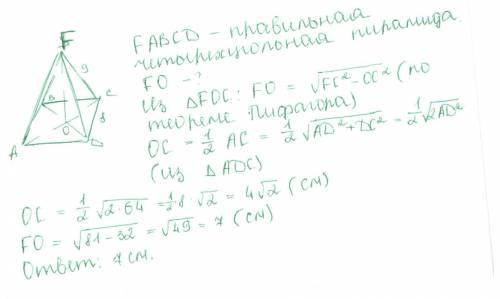 F
9
B
C
8
O
A
D
FABCD – правильная
четырехугольная пирамида.
FO – ?
Из △FOC: FO = √(FC² – OC²) (по
теореме Пифагора)
OC = 1/2 AC = 1/2 √(AD² + DC²) = 1/2 √(2AD²)
(из △ADC)
OC = 1/2 √(2·64) = 1/2·8·√2 = 4√2 (см)
FO = √(81 – 32) = √49 = 7 (см)
Ответ: 7 см.